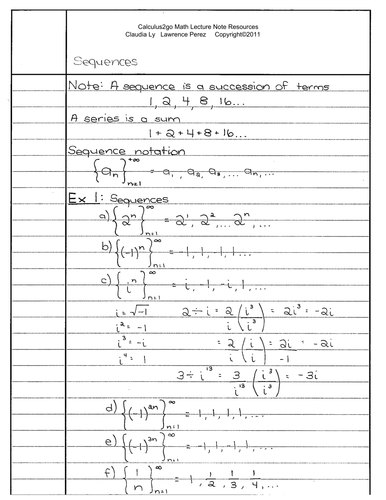 Calculus2go Math Lecture Note Resources
Claudia Ly Lawrence Perez Copyright©2011
Sequences
Note: A sequence is a succession of terms
1, 2, 4, 8, 16...
A series is a sum
1 + 2 + 4 + 8 + 16...
Sequence notation
{a_n}_{n=1}^{+∞} = a_1, a_2, a_3, ... a_n, ...
Ex 1: Sequences
a) {2^n}_{n=1}^{∞} = 2^1, 2^2, ... 2^n, ...
b) {(-1)^n}_{n=1}^{∞} = -1, 1, -1, 1...
c) {i^n}_{n=1}^{∞} = i, -1, -i, 1, ...
i = √-1 2 ÷ i = 2/i (i^3/i^3) = 2i^3 = -2i
i^2 = -1
i^3 = -i = 2/i (i/i) = 2i/-1 = -2i
i^4 = 1
3 ÷ i^13 = 3/i^13 (i^3/i^3) = -3i
d) {(-1)^{2n}}_{n=1}^{∞} = 1, 1, 1, 1, ...
e) {(-1)^{3n}}_{n=1}^{∞} = -1, 1, -1, 1, ...
f) {1/n}_{n=1}^{∞} = 1, 1/2, 1/3, 1/4, ...